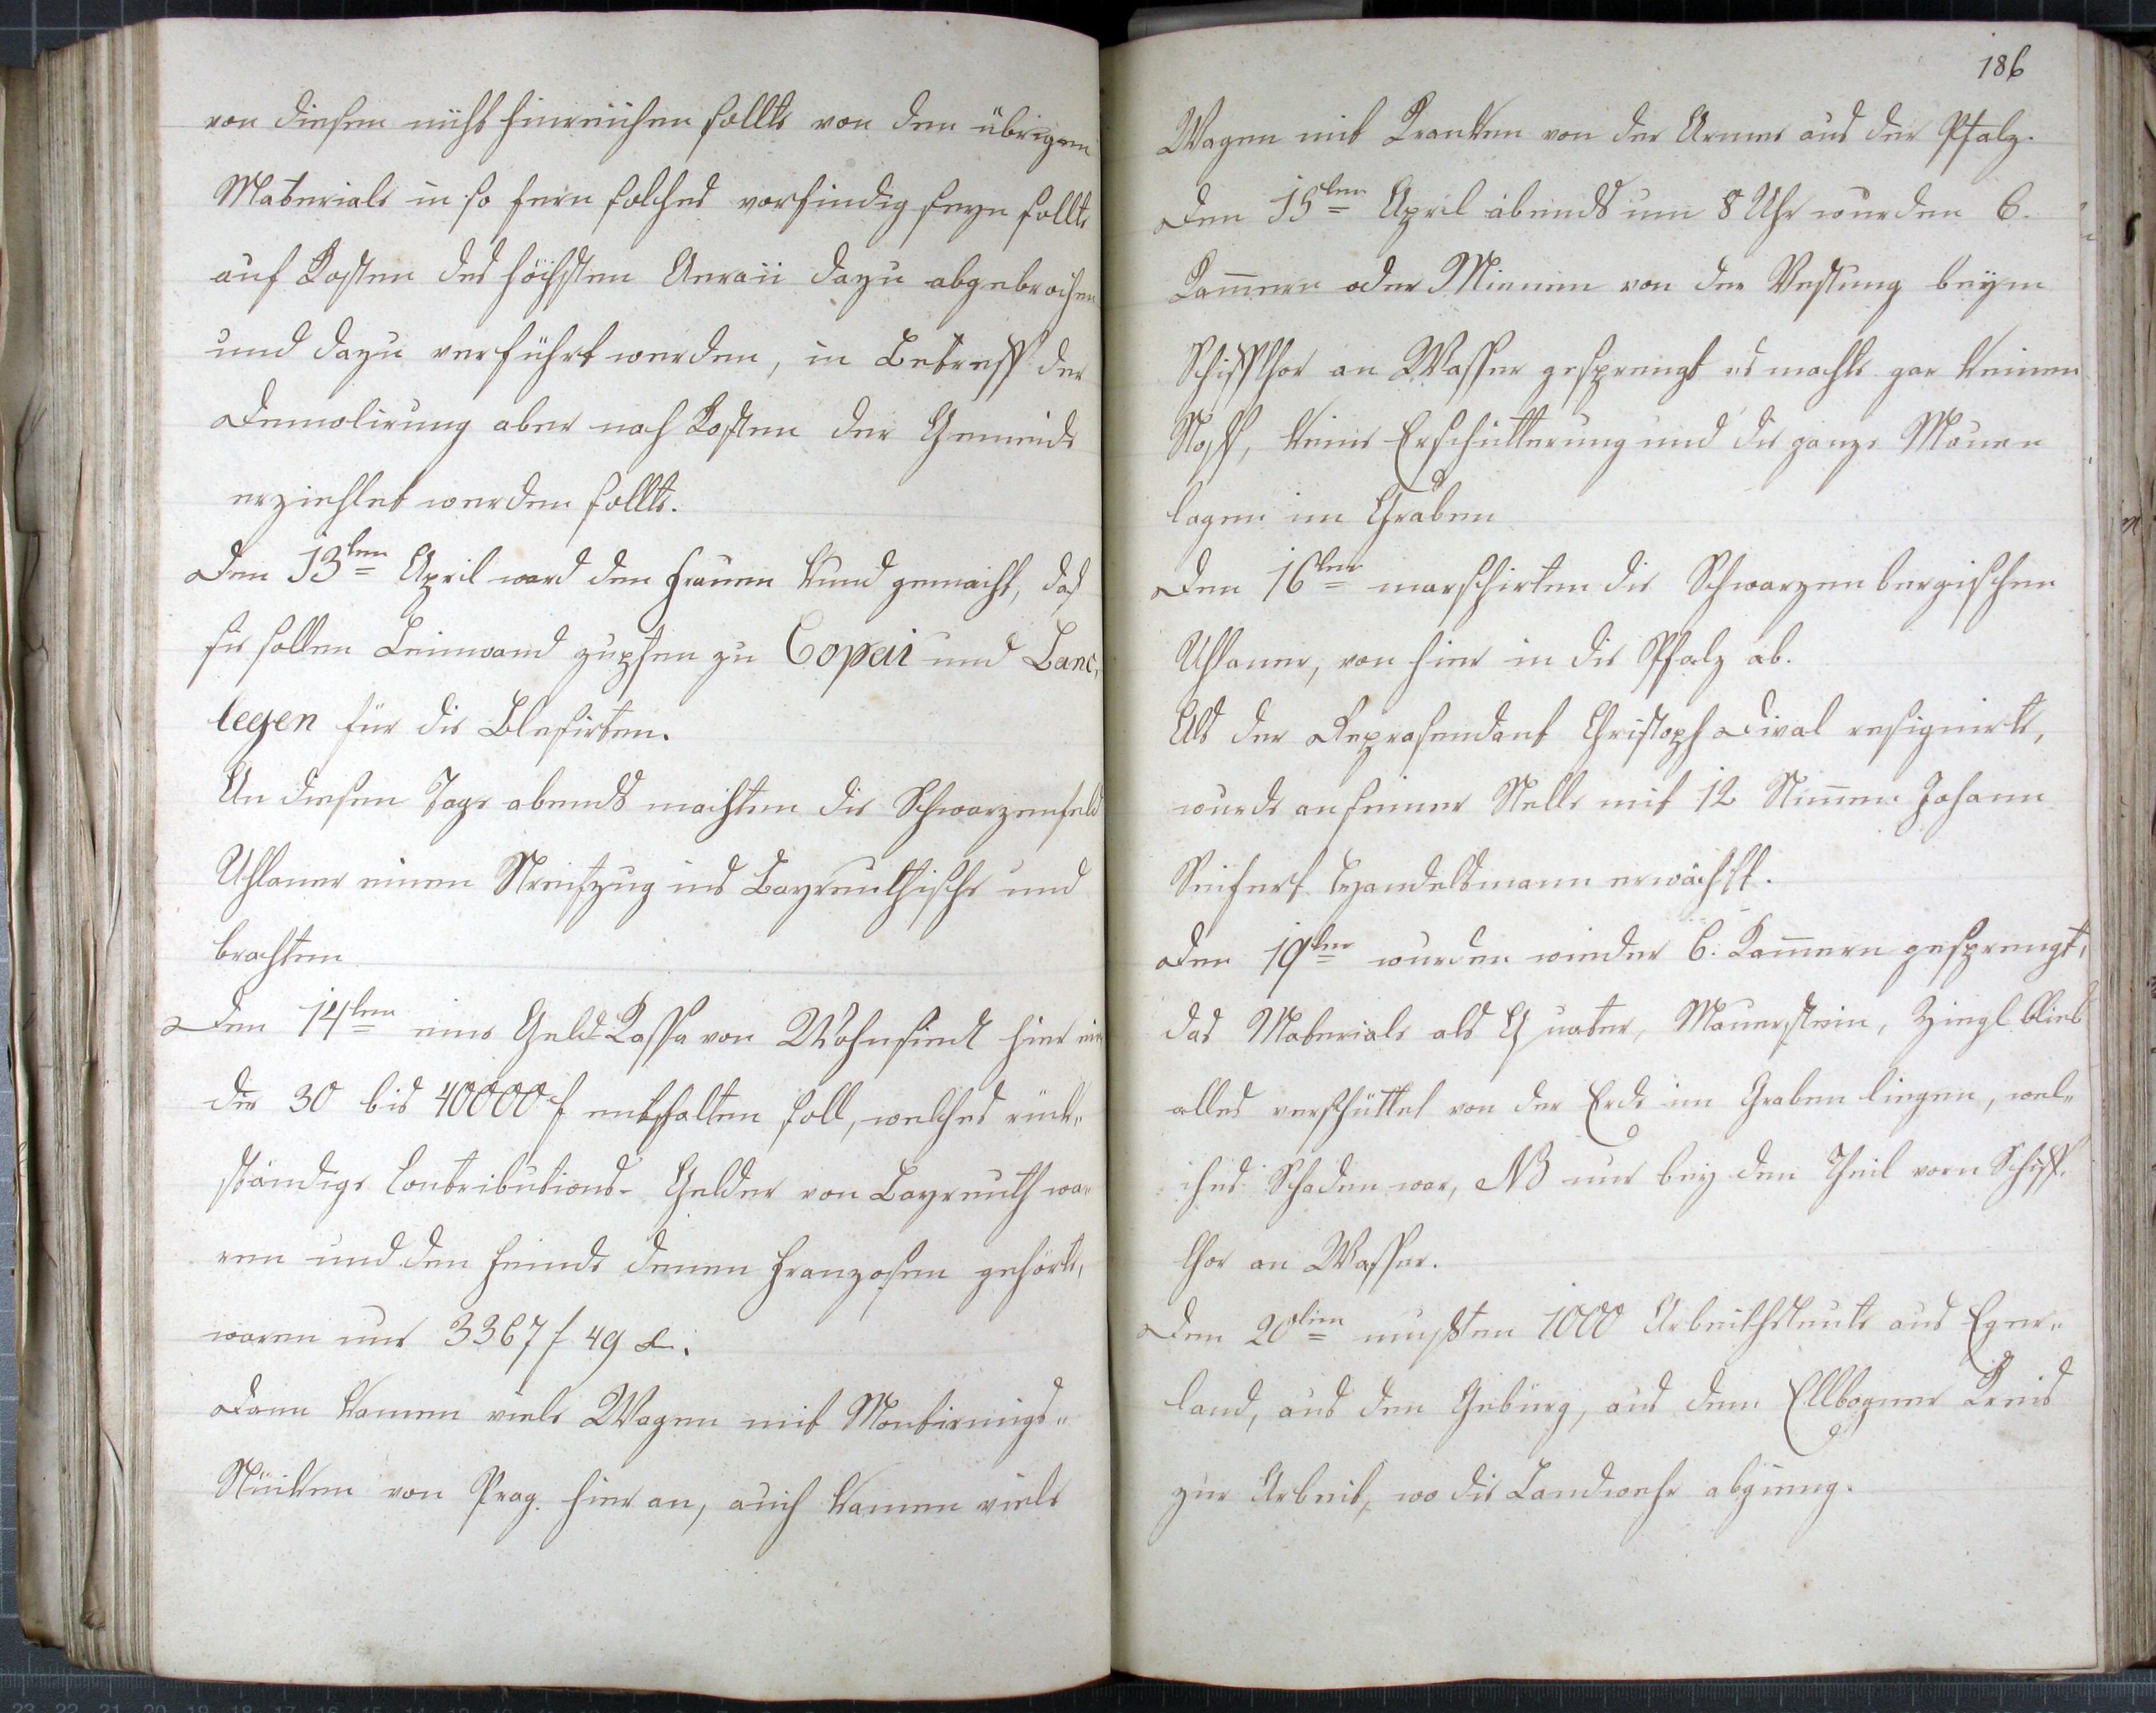 von diesen nicht hinreichen sollte von den übrigen
Materiale in so fern solches vorfindig seyn sollte
auf Kosten des höchsten Aeraii dazu abgebrochen
und dazu verführt werden, in Betreff der
Demolirung aber nach Kosten der Gemeinde
erziehlet werden sollte.
Den 13ten April ward den Frauen kund gemacht, daß
sie sollen Leinwand zupfen zu Copai und Banc,
legen für die Blesirten.
An diesen Tage abends machten die Schwarzenfeld
Uhlaner einen Streifzug ins Bayreuthische und
brachten
Den 14ten eine Geld Kassa von Wohnsiedl hier ein
die 30 bis 40000 f enthalten soll, welches rück„
ständige Contributions- Gelder von Bayreuth wa„
ren und den Feinde denen Franzosen gehörte,
waren nur 3367 f 49 x.
Dann kamen viele Wagen mit Montirungs„
Stücken von Prag hier an, auch kamen viele
186
Wagen mit Kranken von der Armee aus der Pfalz.
Den 15ten April abends um 8 Uhr wurden 6.
Kam̄ern oder Minnen von der Vestung beym
Schiffthor an Wasser gesprengt es machte gar keinen
Stoß, keine Erschütterung und die ganze Mauer
lagen im Graben
Den 16ten marschirten die Schwarzenbergischen
Uhlaner, von hier in die Pfalz ab.
Als der Reprasendant Christoph Dival resignirte,
wurde an seiner Stelle mit 12 Stim̄en Johann
Seifert Handelsmann erwählt.
Den 19ten wurden wieder 6. Kam̄ern gesprengt,
das Materiale als Quater, Mauerstein, Ziegl blieb
alles verschüttet von der Erde im Graben liegen, wel„
ches Schaden war, NB nur bey den Theil vorn Schiff„
thor an Wasser.
Den 20ten mußten 1000 Arbeithsleute aus Eger„
land, aus den Gebürg, aus dem Ellbogner Kreis
zur Arbeit, wo die Landwehr abgieng.